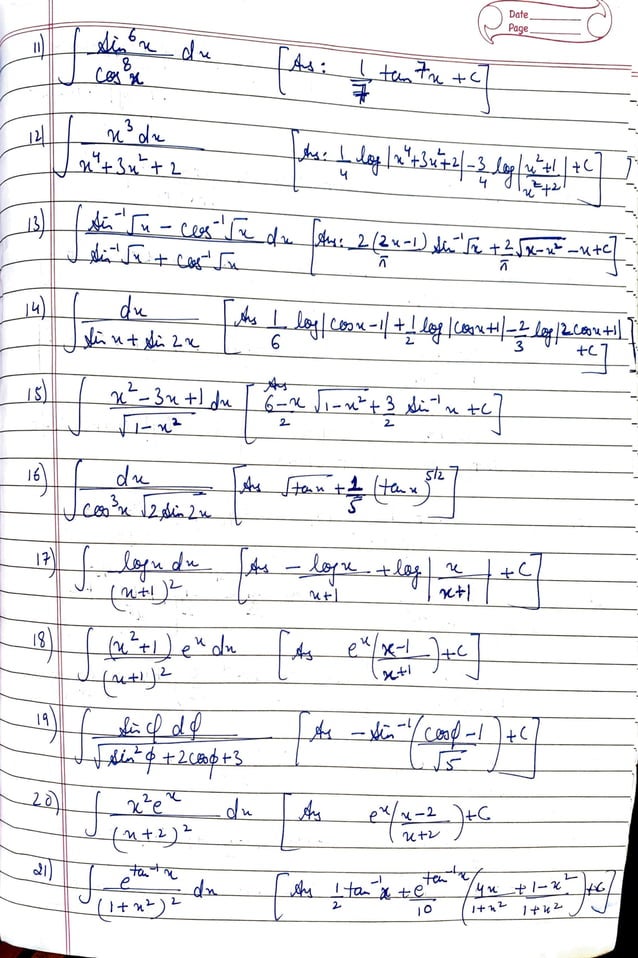 Date
Page
11) ∫ sin⁶x / cos⁸x dx [Ans: 1/7 tan⁷x + c]
12) ∫ x³ dx / x⁴+3x²+2 [Ans: 1/4 log|x⁴+3x²+2| - 3/4 log|x²+1 / x²+2| + c]
13) ∫ sin⁻¹√x - cos⁻¹√x / sin⁻¹√x + cos⁻¹√x dx [Ans: 2(2x-1)/π sin⁻¹√x + 2/π √x-x² - x + c]
14) ∫ dx / sin x + sin 2x [Ans 1/6 log|cosx-1| + 1/2 log|cosx+1| - 2/3 log|2cosx+1| + c]
15) ∫ x²-3x+1 / √1-x² dx [Ans 6-x/2 √1-x² + 3/2 sin⁻¹x + c]
16) ∫ dx / cos³x √2sin2x [Ans √tanx + 1/5 (tanx)^5/2]
17) ∫ logx dx / (x+1)² [Ans - logx / x+1 + log|x / x+1| + c]
18) ∫ (x²+1) eˣ dx / (x+1)² [Ans eˣ(x-1 / x+1) + c]
19) ∫ sin φ dφ / √sin²φ + 2cosφ + 3 [Ans - sin⁻¹(cosφ-1 / √5) + c]
20) ∫ x²eˣ / (x+2)² dx [Ans eˣ(x-2 / x+2) + c
21) ∫ e^tan⁻¹x / (1+x²)² dx [Ans 1/2 tan⁻¹x + e^tan⁻¹x / 10 (4x / 1+x² + 1-x² / 1+x²) + c]